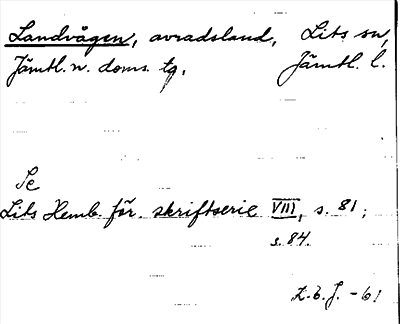 Landvågen, avradsland, Lits sn,
Jämtl. n. doms. tg. Jämtl. l.
Se
Lits Hemb. för. skriftserie VIII, s. 81;
s. 84.
Z. b. J. - 61